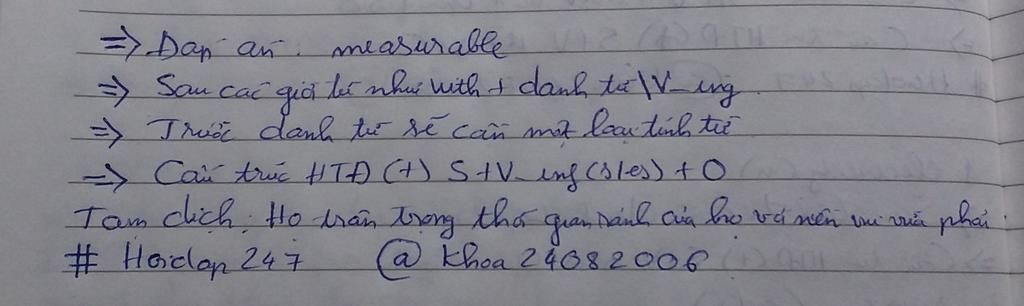 => Đáp án: measurable
=> Sau các giới từ như with + danh từ \ V_ing.
=> Trước danh từ sẽ cần một loại tính từ
=> Cấu trúc HTĐ (+) S + V_ing (s/es) + O
Tạm dịch: Họ trân trọng thời gian rảnh của họ và nên vui vẻ phải
# Hoidap 247 @ khoa 24082006